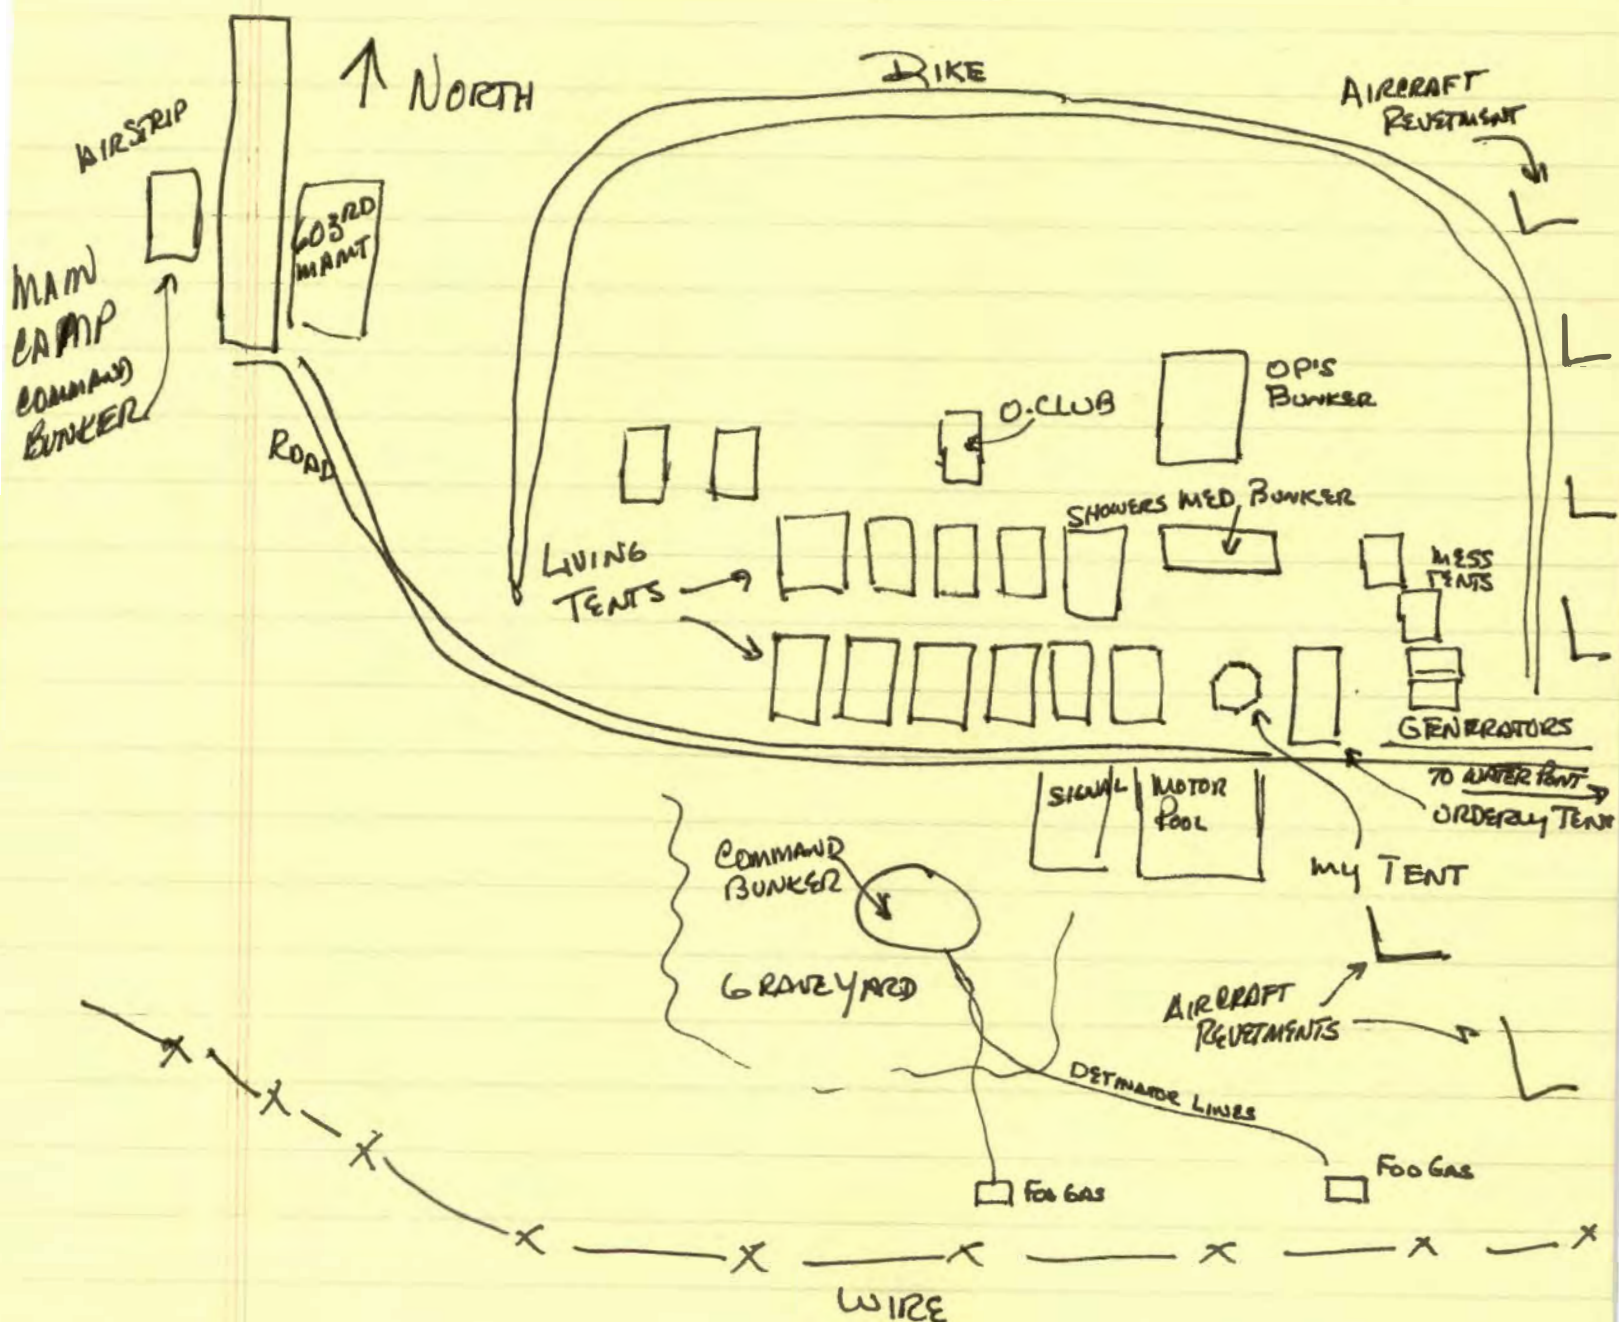 NORTH
DIKE
AIRCRAFT
REVETMENT
AIRSTRIP
603RD
MAMT
MAIN
CAMP
COMMAND
BUNKER
ROAD
O-CLUB
OP'S
BUNKER
SHOWERS MED. BUNKER
LIVING
TENTS
MESS
TENTS
GENERATORS
TO WATER POINT
ORDERLY TENT
SIGNAL
MOTOR
POOL
MY TENT
COMMAND
BUNKER
GRAVEYARD
AIRCRAFT
REVETMENTS
DETINATOR LINES
FOO GAS
FOO GAS
WIRE